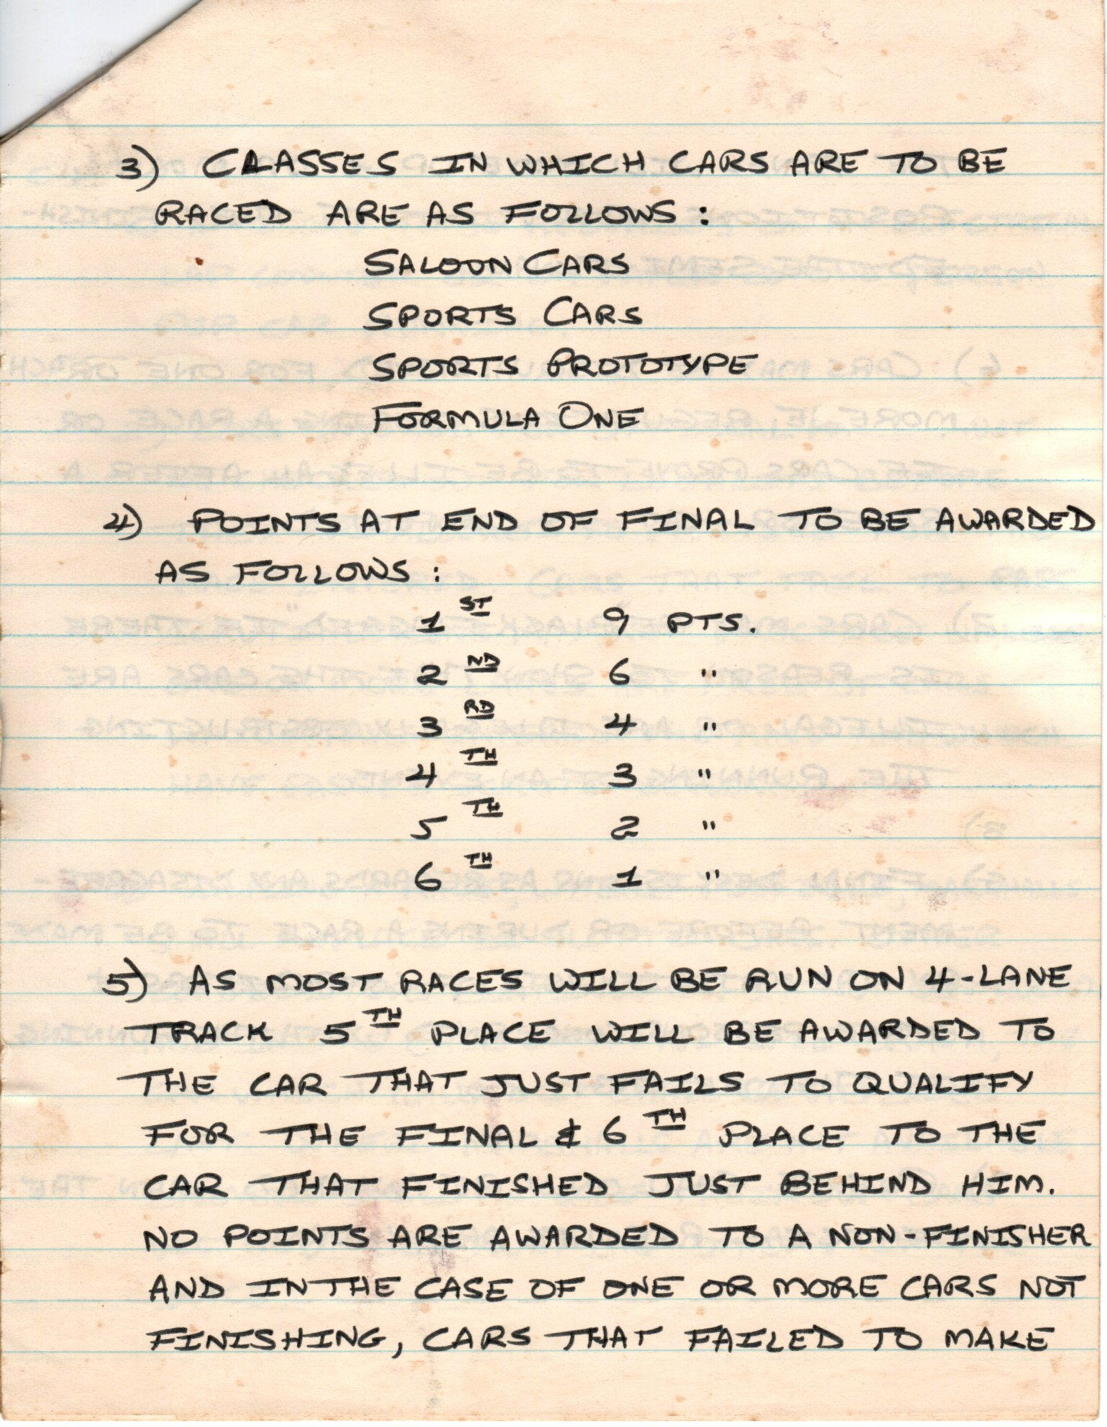 3) CLASSES IN WHICH CARS ARE TO BE
RACED ARE AS FOLLOWS :
SALOON CARS
SPORTS CARS
SPORTS PROTOTYPE
FORMULA ONE
4) POINTS AT END OF FINAL TO BE AWARDED
AS FOLLOWS :
1ST 9 PTS.
2ND 6 "
3RD 4 "
4TH 3 "
5TH 2 "
6TH 1 "
5) AS MOST RACES WILL BE RUN ON 4-LANE
TRACK 5TH PLACE WILL BE AWARDED TO
THE CAR THAT JUST FAILS TO QUALIFY
FOR THE FINAL & 6TH PLACE TO THE
CAR THAT FINISHED JUST BEHIND HIM.
NO POINTS ARE AWARDED TO A NON-FINISHER
AND IN THE CASE OF ONE OR MORE CARS NOT
FINISHING, CARS THAT FAILED TO MAKE